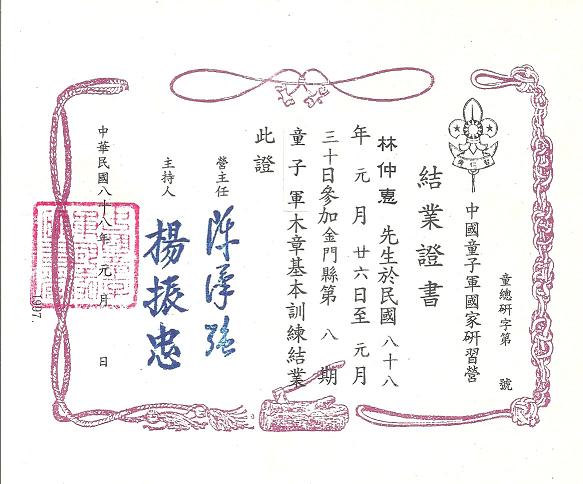 童總研字第 號
中國童子軍國家研習營
結業證書
林仲惠 先生於民國八十八
年元月廿六日至元月
三十日參加金門縣第八期
童子軍木章基本訓練結業
此證
營主任
主持人
楊振忠
中華民國八十八年元月 日